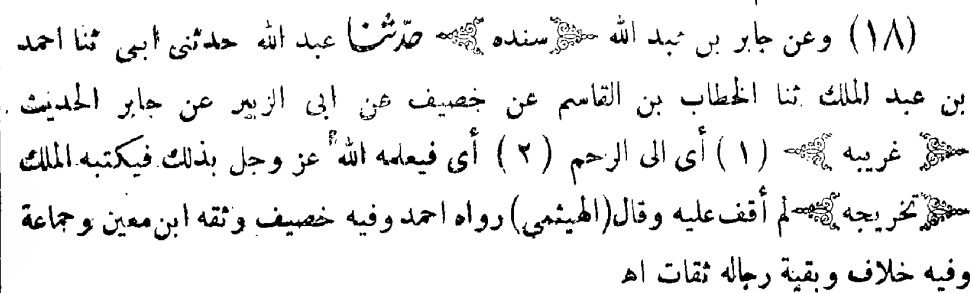 (١٨) وعن جابر بن عبد الله ﴿سنده﴾ حدّثنا عبد الله حدثنى أبى ثنا احمد
بن عبد الملك ثنا الخطاب بن القاسم عن خصيف عن ابى الزبير عن جابر الحديث .
﴿غريبه﴾ (١) أى الى الرحم (٢) أى فيعلمه الله عز وجل بذلك فيكتبه الملك
﴿تخريجه﴾ لم أقف عليه وقال (الهيثمي) رواه احمد وفيه خصيف وثقه ابن معين وجماعة
وفيه خلاف وبقية رجاله ثقات اهـ